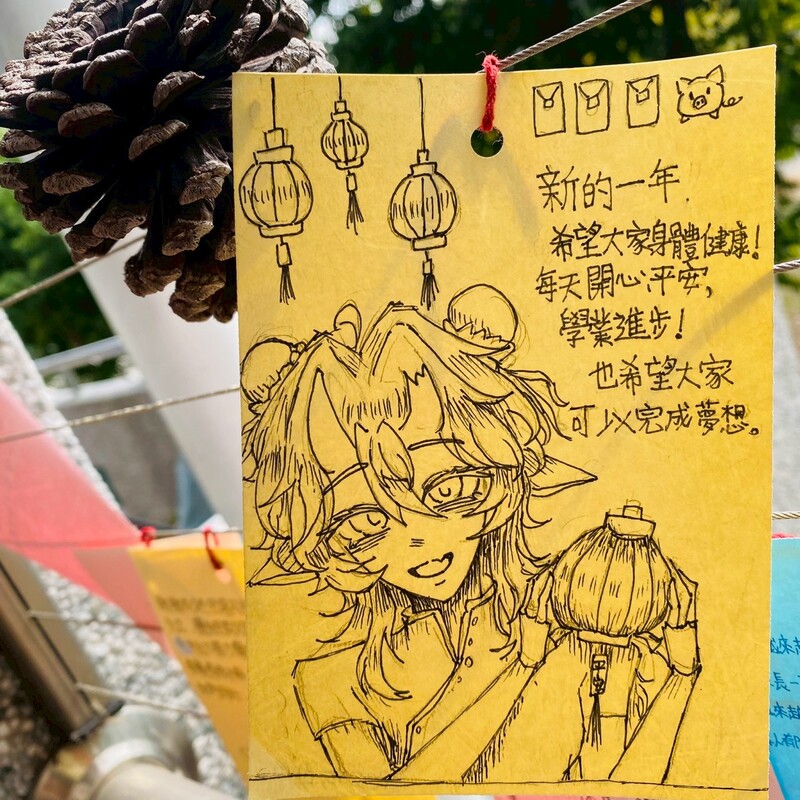 新的一年,
希望大家身體健康!
每天開心平安,
學業進步!
也希望大家
可以完成夢想。